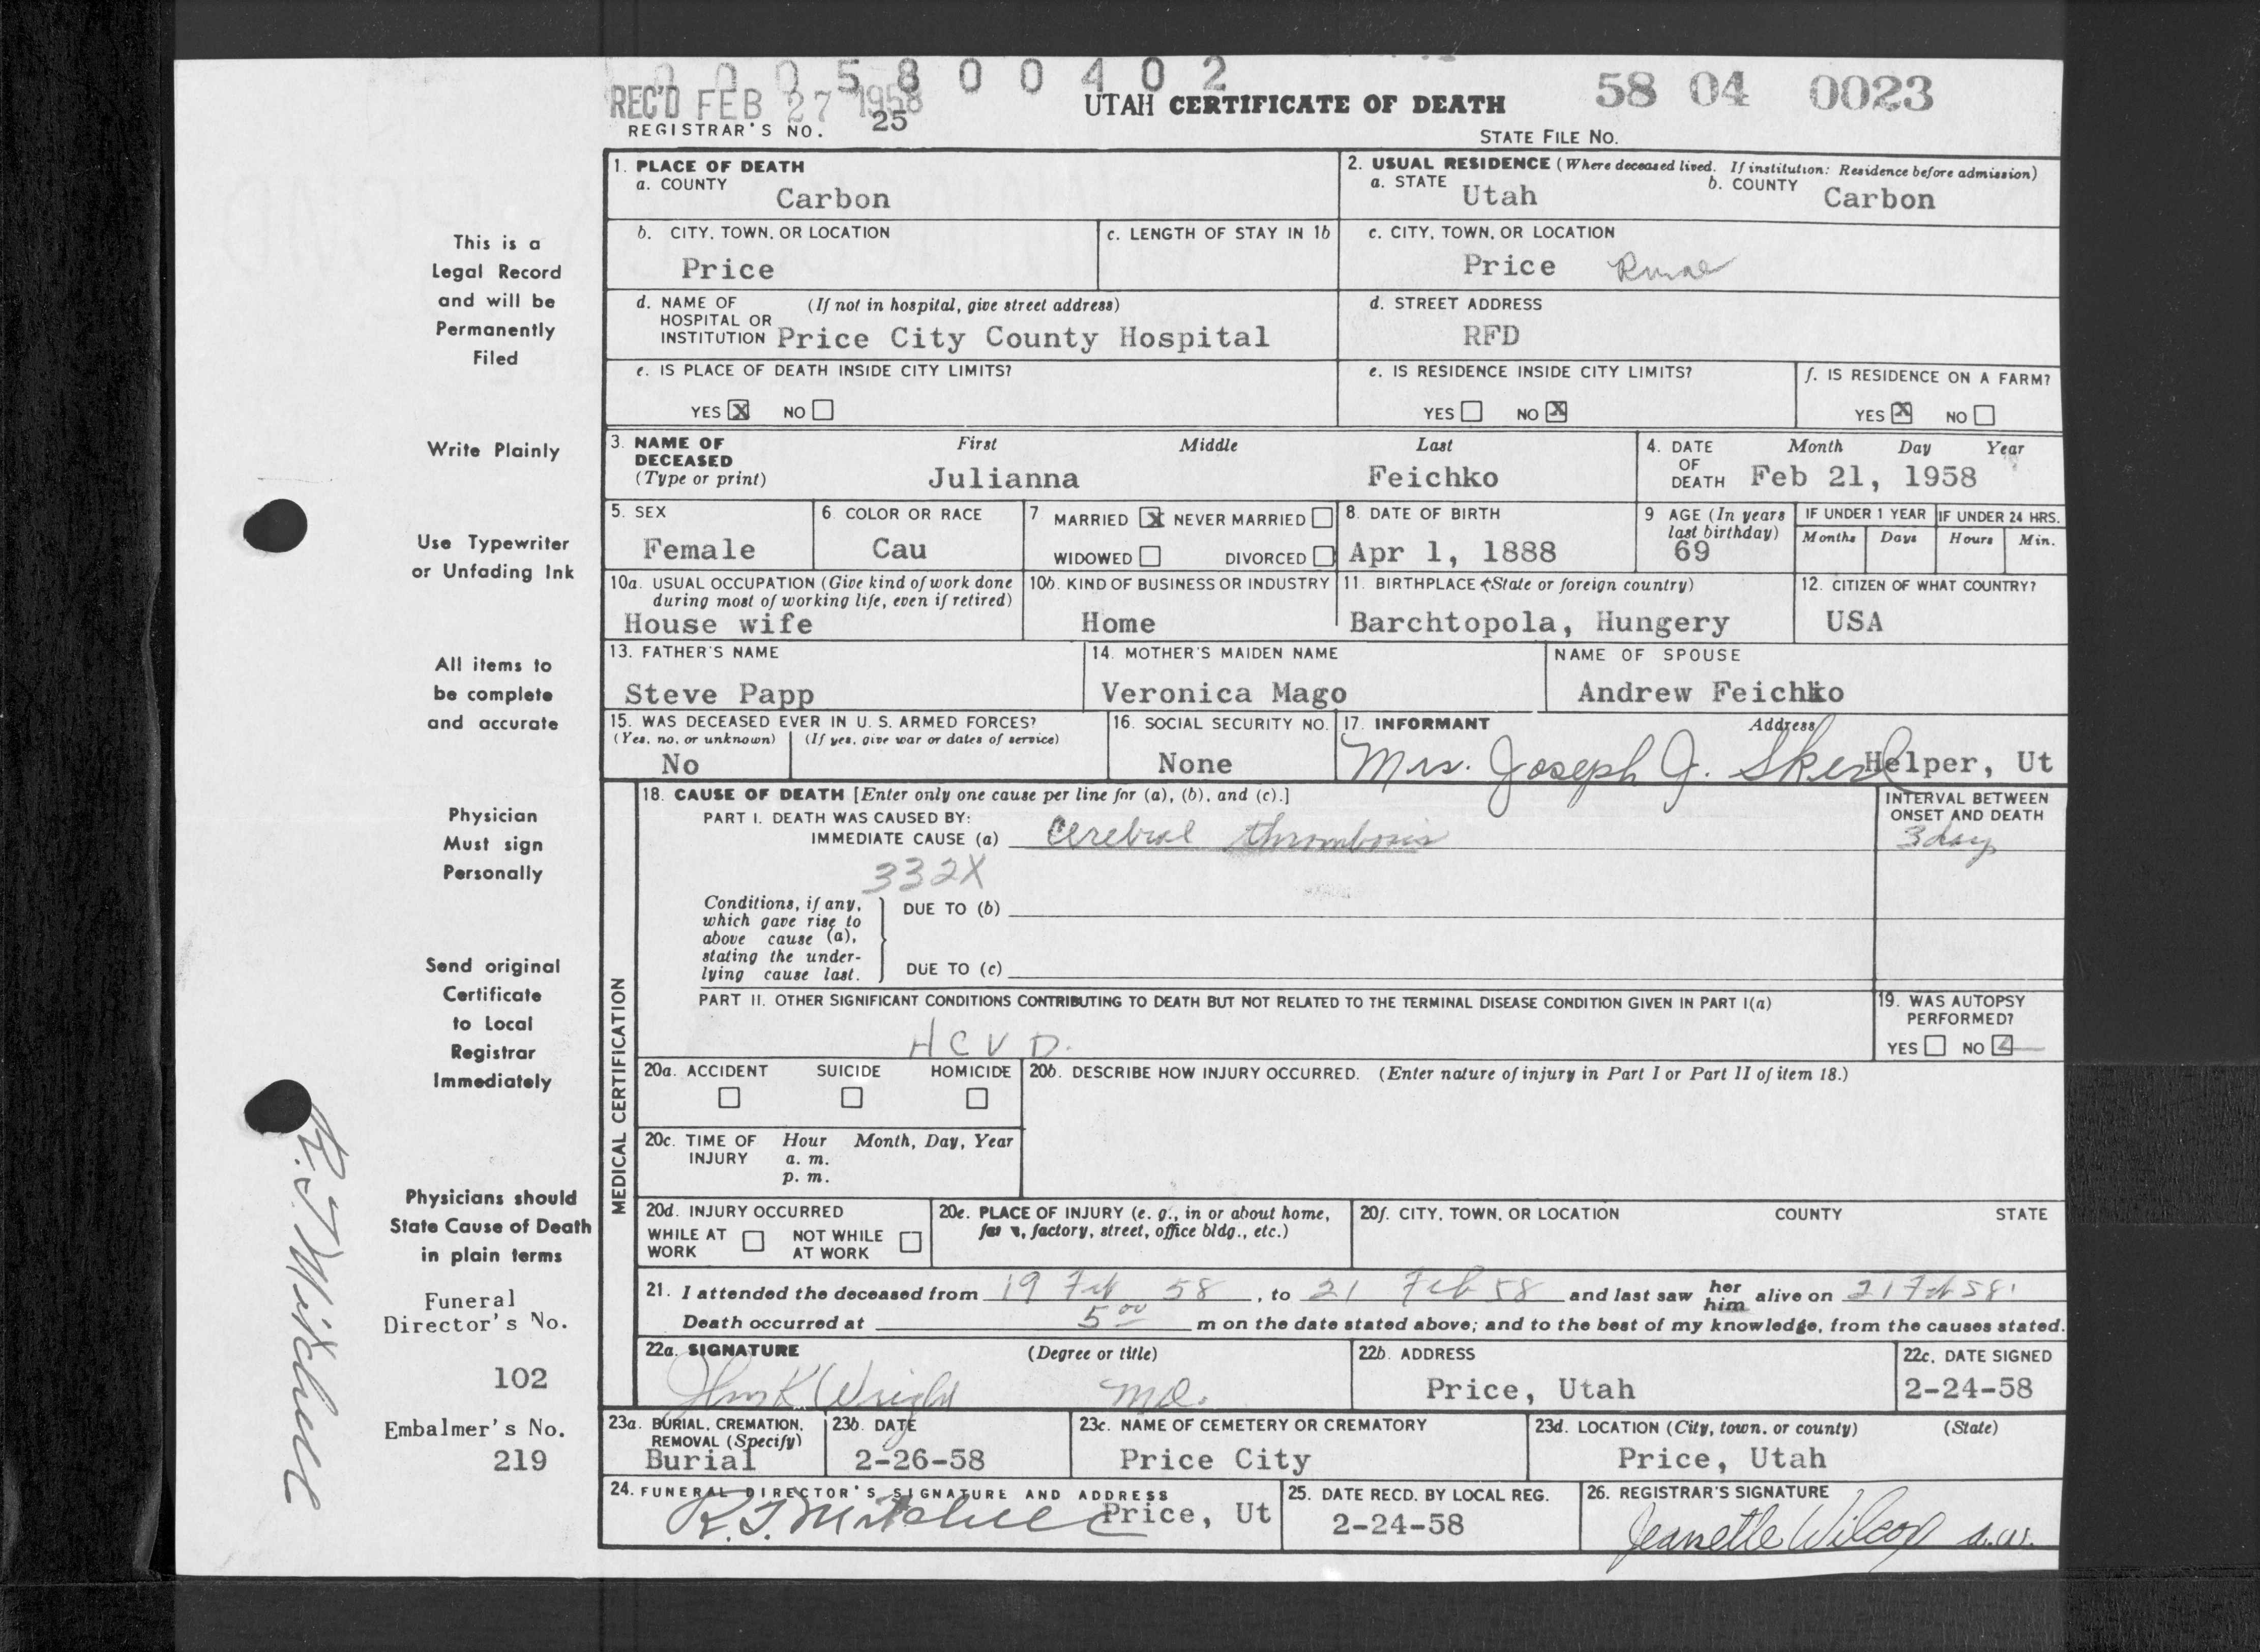 0 0 0 5 8 0 0 4 0 2
REC'D FEB 27 1958
UTAH CERTIFICATE OF DEATH
58 04 0023
REGISTRAR'S NO. 25
STATE FILE NO.
This is a
Legal Record
and will be
Permanently
Filed
Write Plainly
Use Typewriter
or Unfading Ink
All items to
be complete
and accurate
Physician
Must sign
Personally
Send original
Certificate
to Local
Registrar
Immediately
Physicians should
State Cause of Death
in plain terms
Funeral
Director's No.
102
Embalmer's No.
219
R. J. Mitchell
1. PLACE OF DEATH
a. COUNTY
Carbon
2. USUAL RESIDENCE (Where deceased lived. If institution: Residence before admission)
a. STATE Utah
b. COUNTY Carbon
b. CITY, TOWN, OR LOCATION
Price
c. LENGTH OF STAY IN 1b
c. CITY, TOWN, OR LOCATION
Price Rural
d. NAME OF (If not in hospital, give street address)
HOSPITAL OR
INSTITUTION Price City County Hospital
d. STREET ADDRESS
RFD
e. IS PLACE OF DEATH INSIDE CITY LIMITS?
YES X NO
e. IS RESIDENCE INSIDE CITY LIMITS?
YES NO X
f. IS RESIDENCE ON A FARM?
YES X NO
3. NAME OF DECEASED (Type or print)
First Middle Last
Julianna Feichko
4. DATE OF DEATH
Month Day Year
Feb 21, 1958
5. SEX
Female
6. COLOR OR RACE
Cau
7 MARRIED X NEVER MARRIED
WIDOWED DIVORCED
8. DATE OF BIRTH
Apr 1, 1888
9 AGE (In years last birthday)
69
IF UNDER 1 YEAR
Months Days
IF UNDER 24 HRS.
Hours Min.
10a. USUAL OCCUPATION (Give kind of work done
during most of working life, even if retired)
House wife
10b. KIND OF BUSINESS OR INDUSTRY
Home
11. BIRTHPLACE (State or foreign country)
Barchtopola, Hungery
12. CITIZEN OF WHAT COUNTRY?
USA
13. FATHER'S NAME
Steve Papp
14. MOTHER'S MAIDEN NAME
Veronica Mago
NAME OF SPOUSE
Andrew Feichko
15. WAS DECEASED EVER IN U. S. ARMED FORCES?
(Yes, no, or unknown) (If yes, give war or dates of service)
No
16. SOCIAL SECURITY NO.
None
17. INFORMANT Address
Mrs. Joseph J. Skerl Helper, Ut
MEDICAL CERTIFICATION
18. CAUSE OF DEATH [Enter only one cause per line for (a), (b), and (c).]
PART I. DEATH WAS CAUSED BY:
IMMEDIATE CAUSE (a) Cerebral thrombosis
332X
INTERVAL BETWEEN
ONSET AND DEATH
3 days
Conditions, if any,
which gave rise to
above cause (a),
stating the under-
lying cause last.
DUE TO (b)
DUE TO (c)
PART II. OTHER SIGNIFICANT CONDITIONS CONTRIBUTING TO DEATH BUT NOT RELATED TO THE TERMINAL DISEASE CONDITION GIVEN IN PART I(a)
H C V D.
19. WAS AUTOPSY
PERFORMED?
YES NO
20a. ACCIDENT SUICIDE HOMICIDE
20b. DESCRIBE HOW INJURY OCCURRED. (Enter nature of injury in Part I or Part II of item 18.)
20c. TIME OF INJURY
Hour Month, Day, Year
a. m.
p. m.
20d. INJURY OCCURRED
WHILE AT WORK NOT WHILE AT WORK
20e. PLACE OF INJURY (e. g., in or about home,
farm, factory, street, office bldg., etc.)
20f. CITY, TOWN, OR LOCATION COUNTY STATE
21. I attended the deceased from 19 Feb 58, to 21 Feb 58 and last saw her him alive on 21 Feb 58.
Death occurred at 5 00 m on the date stated above; and to the best of my knowledge, from the causes stated.
22a. SIGNATURE (Degree or title)
John K Wright MD.
22b. ADDRESS
Price, Utah
22c. DATE SIGNED
2-24-58
23a. BURIAL, CREMATION,
REMOVAL (Specify)
Burial
23b. DATE
2-26-58
23c. NAME OF CEMETERY OR CREMATORY
Price City
23d. LOCATION (City, town, or county) (State)
Price, Utah
24. FUNERAL DIRECTOR'S SIGNATURE AND ADDRESS
R. J. Mitchell Price, Ut
25. DATE RECD. BY LOCAL REG.
2-24-58
26. REGISTRAR'S SIGNATURE
Jeanette Wilcox